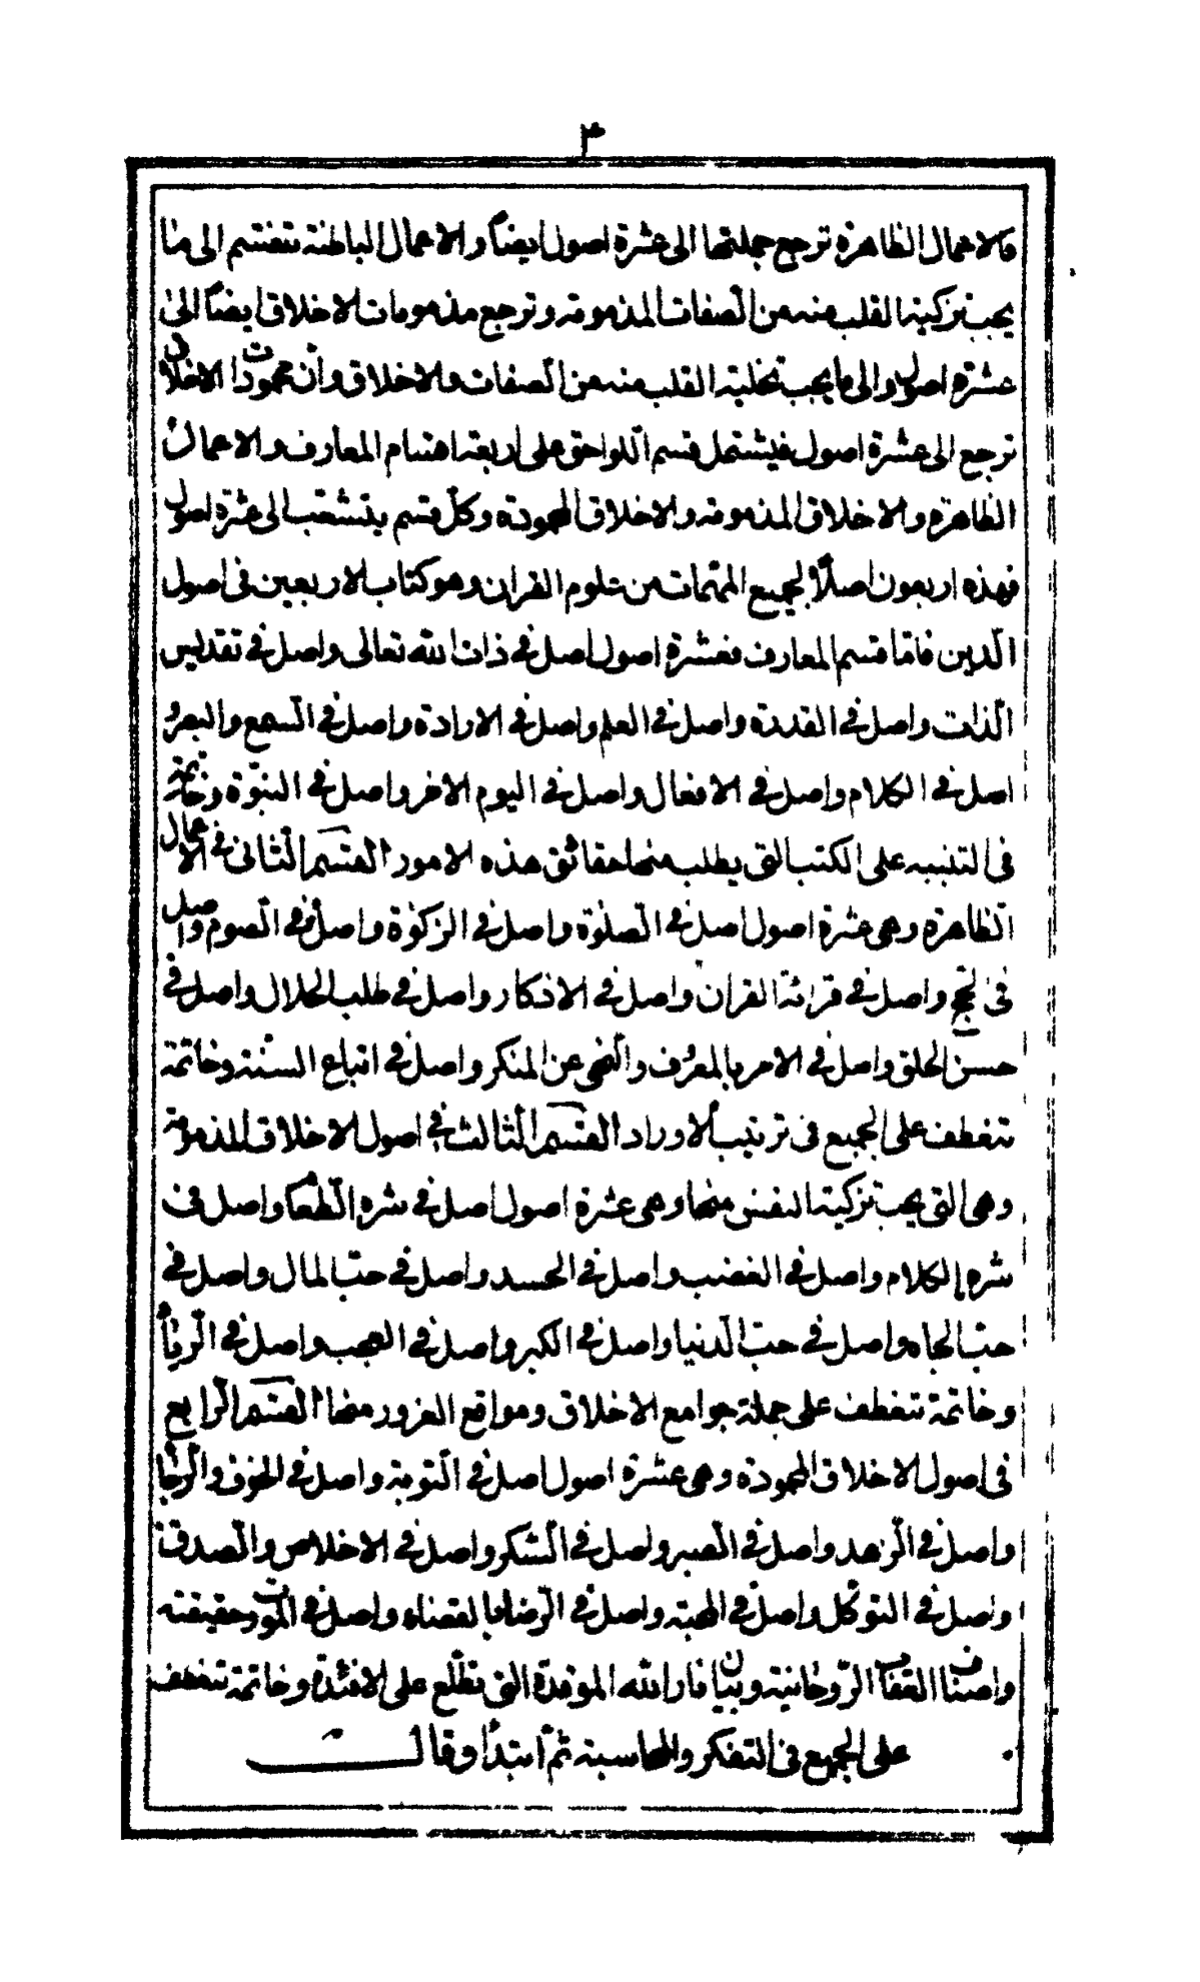 ٣
فالاعمال الظاهرة ترجع جملتها الى عشرة اصول ايضاً والاعمال الباطنة تنقسم الى ما
يجب تزكية القلب منه من الصفات المذمومة وترجع مذمومات الاخلاق ايضاً الى
عشرة اصول والى ما يجب تحلية القلب منه من الصفات والاخلاق وأن محمودات الاخلاق
ترجع الى عشرة اصول فيشتمل قسم اللواحق على اربعة اقسام المعارف والاعمال
الظاهرة والاخلاق المذمومة والاخلاق المحمودة وكلّ قسم يتشعّب الى عشرة اصول
فهذه اربعون اصلاً لجميع المهمّات من علوم القران وهو كتاب الاربعين فى اصول
الدّين فامّا قسم المعارف فعشرة اصول اصل فى ذات الله تعالى واصل فى تقديس
الذّات واصل فى القدرة واصل فى العلم واصل فى الارادة واصل فى السّمع والبصر و
اصل فى الكلام واصل فى الافعال واصل فى اليوم الاخر واصل فى النبوّة وخاتمة
فى التنبيه على الكتب التى يطلب منها حقائق هذه الامور القسم الثّانى فى الاعمال
الظّاهرة وهى عشرة اصول اصل فى الصّلوة واصل فى الزكوة واصل فى الصّوم واصل
فى الحجّ واصل فى قرائة القران واصل فى الاذكار واصل فى طلب الحلال واصل فى
حسن الخلق واصل فى الامر بالمعروف والنّهى عن المنكر واصل فى اتباع السنّة وخاتمة
تنعطف على الجميع فى ترتيب الاوراد القسم الثّالث فى اصول الاخلاق المذمومة
وهى التى يجب تزكية النفس منها وهى عشرة اصول اصل فى شره الطّعام واصل فى
شره الكلام واصل فى الغضب واصل فى الحسد واصل فى حبّ المال واصل فى
حبّ الجاه واصل فى حبّ الدّنيا واصل فى الكبر واصل فى العجب واصل فى الرّياء
وخاتمة تنعطف على جملة جوامع الاخلاق ومواقع الغرور منها القسم الرّابع
فى اصول الاخلاق المحمودة وهى عشرة اصول اصل فى التّوبة واصل فى الخوف والرّجا
واصل فى الزّهد واصل فى الصّبر واصل فى الشّكر واصل فى الاخلاص والصّدق
واصل فى التوكّل واصل فى المحبّة واصل فى الرّضاء بالقضاء واصل فى الموت وحقيقته
واصناف العقاب الرّوحانية وبيان نار الله الموقدة التى تطّلع على الافئدة وخاتمة تنعطف
على الجميع فى التفكر والمحاسبة ثمّ ابتدأ وقال